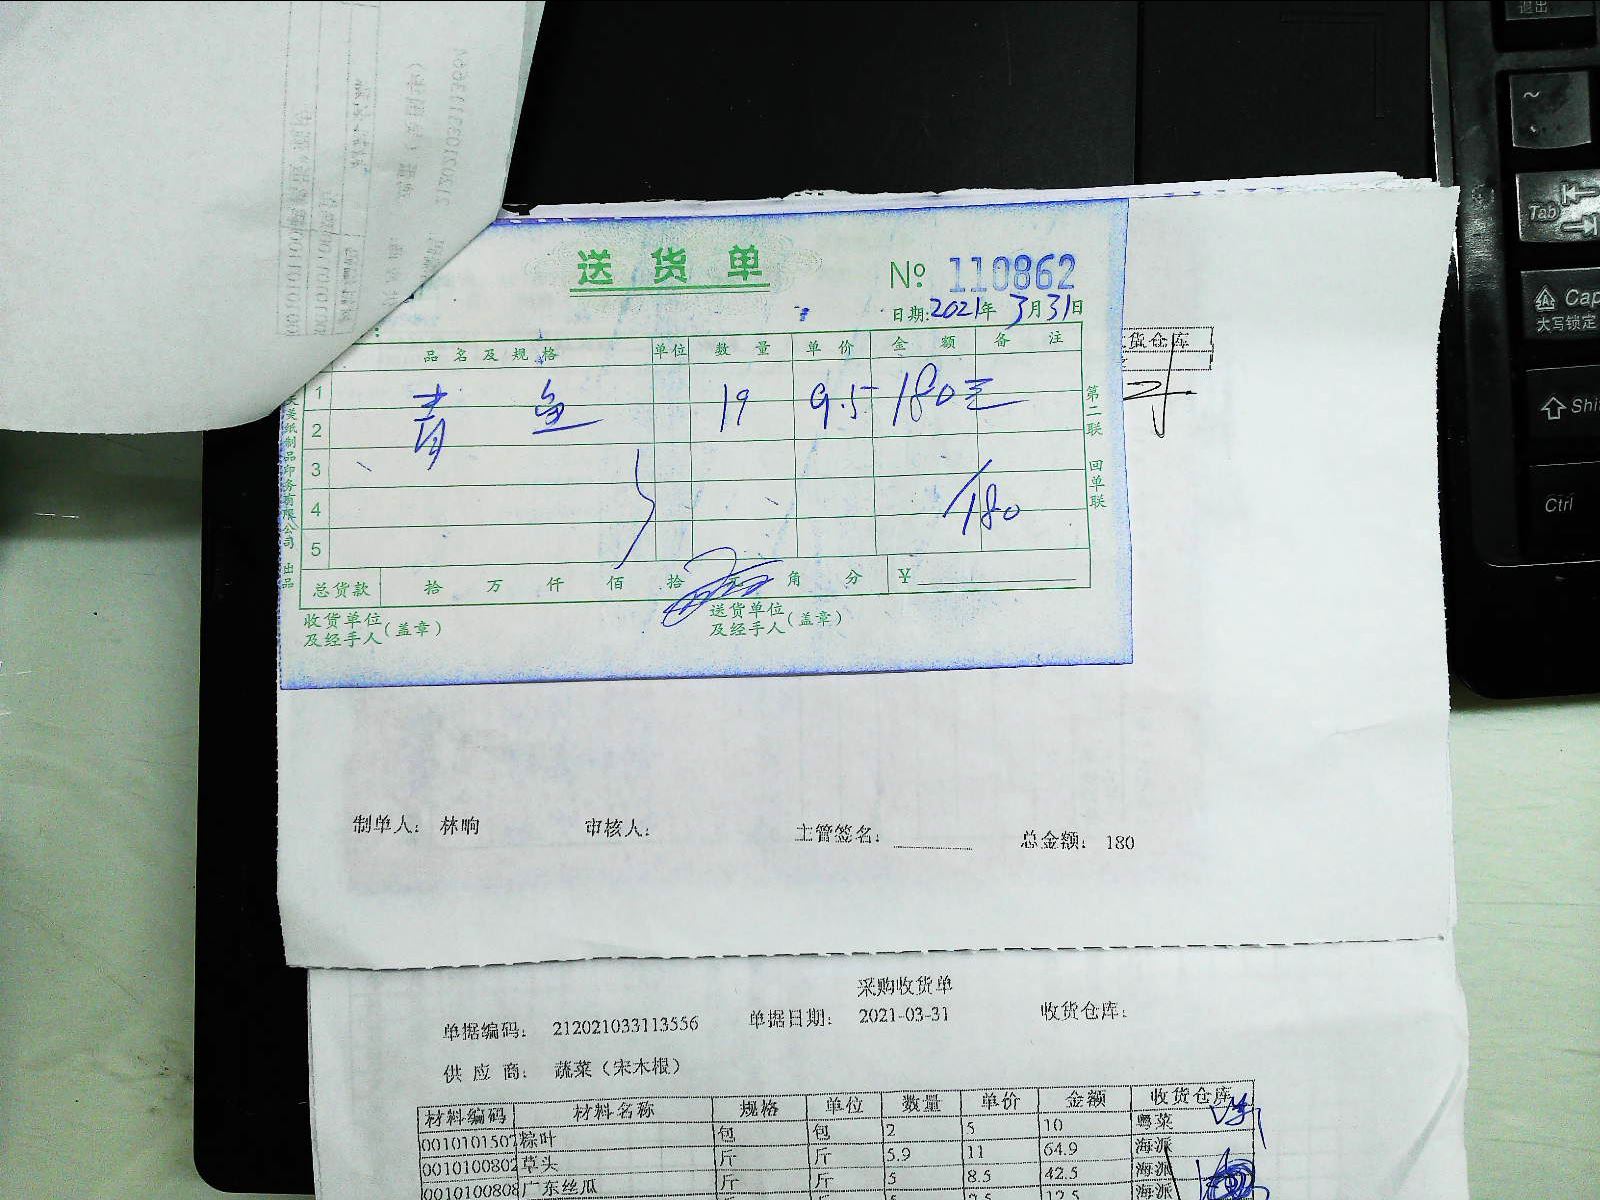 送货单
№ 110862
日期:2021年3月31日
品名及规格 单位 数量 单价 金额 备注
1 青鱼 19 9.5 180元
2
3
4 180
5
总货款 拾 万 仟 佰 拾 元 角 分 ¥
收货单位及经手人(盖章) 送货单位及经手人(盖章)
第二联 回单联
纸制品印务有限公司 出品
货仓库
制单人: 林晌 审核人: 主管签名: 总金额: 180
采购收货单
单据编码: 212021033113556 单据日期: 2021-03-31 收货仓库:
供应商: 蔬菜(宋木根)
材料编码 材料名称 规格 单位 数量 单价 金额 收货仓库
0010101507 粽叶 包 包 2 5 10 粤菜
0010100802 草头 斤 斤 5.9 11 64.9 海派
0010100808 广东丝瓜 斤 斤 5 8.5 42.5 海派
12.5 海派
退出
~
Tab
Cap
大写锁定
Shi
Ctrl